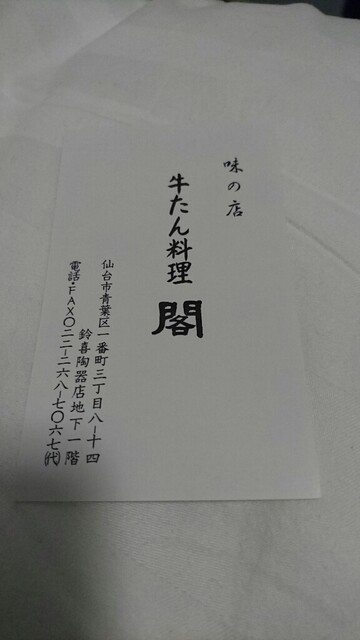 味の店
牛たん料理 閣
仙台市青葉区一番町三丁目八ー十四
鈴喜陶器店地下一階
電話・FAX〇二二ー二六八ー七〇六七(代)